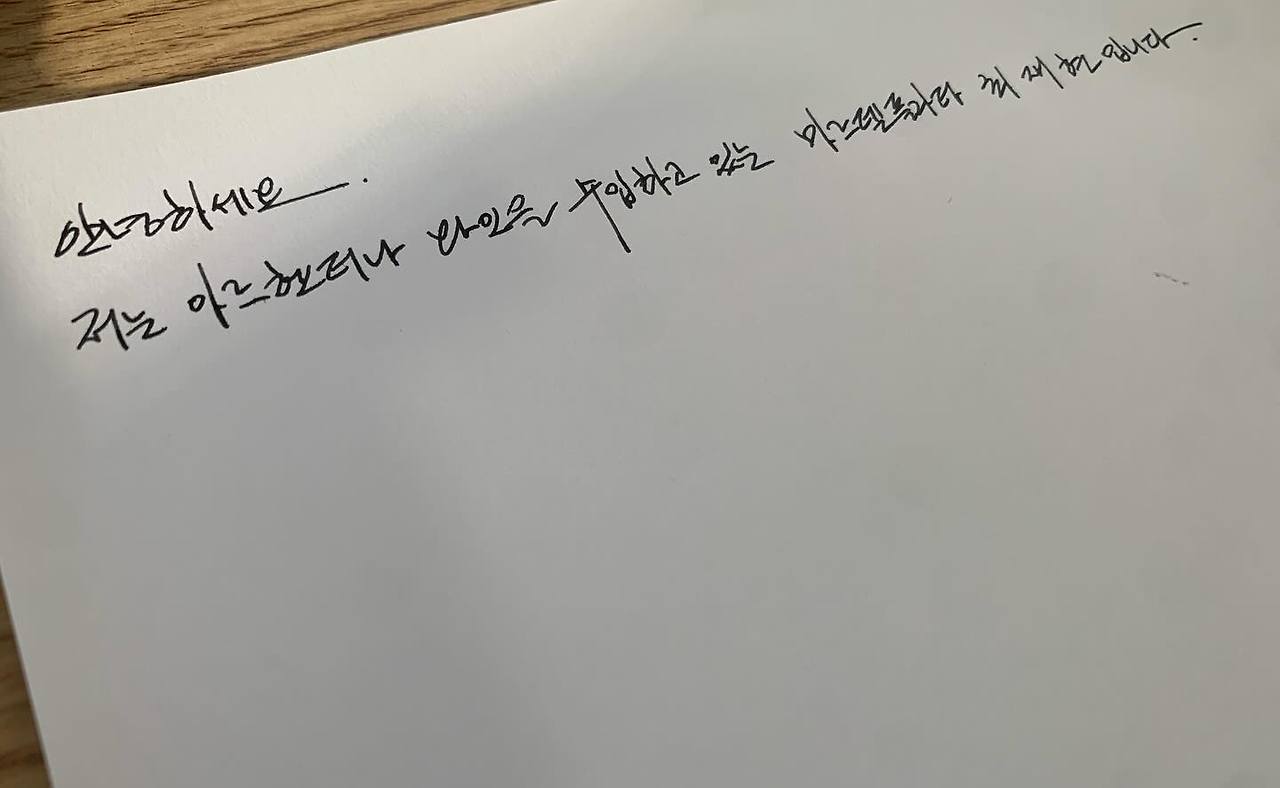 안녕하세요.
저는 아르헨티나 와인을 수입하고 있는 마르델플라타 최재헌입니다.